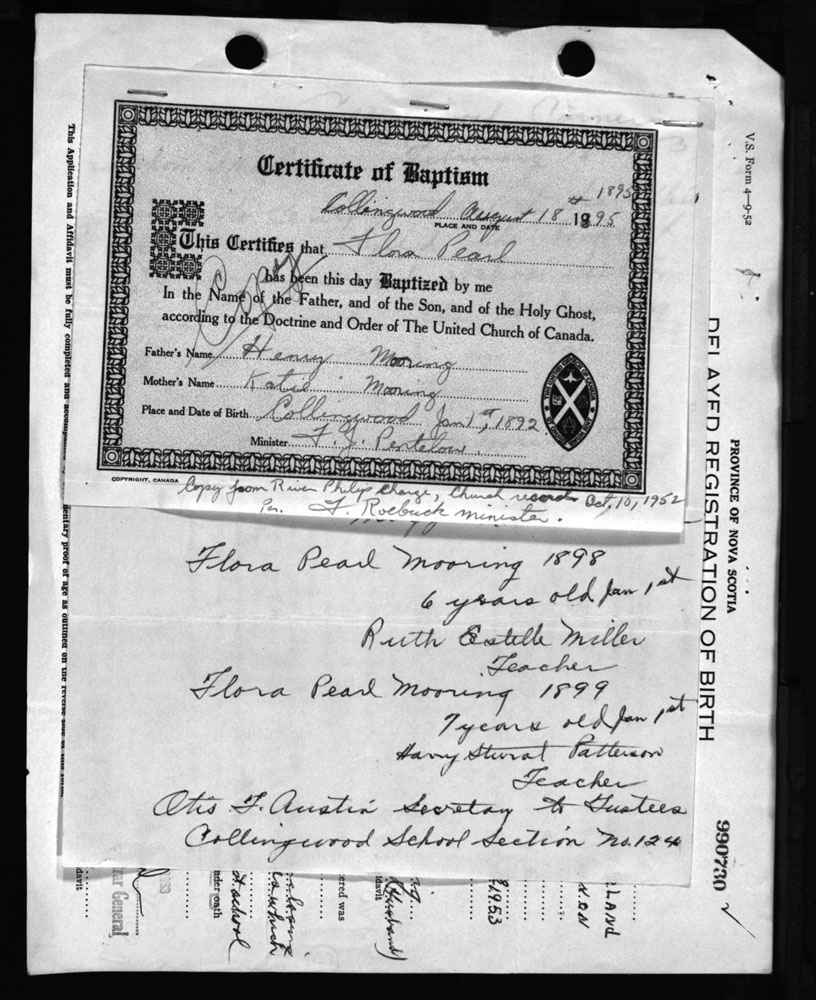 Certificate of Baptism
# 1895
Collingwood August 18 1895
PLACE AND DATE
This Certifies that Flora Pearl
has been this day Baptized by me
In the Name of the Father, and of the Son, and of the Holy Ghost,
according to the Doctrine and Order of The United Church of Canada.
Copy
Father's Name Henry Mooring
Mother's Name Katie Mooring
Place and Date of Birth Collingwood Jan 1st, 1892
Minister F. J. Pentelow.
COPYRIGHT, CANADA
Copy from River Philip Charge, Church records Oct, 10, 1952
Per. F. Roebuck minister.
Flora Pearl Mooring 1898
6 years old Jan 1st
Ruth Estelle Miller
Teacher
Flora Pearl Mooring 1899
7 years old Jan 1st
Harvy Sturat Patterson
Teacher
Otis F. Austin Secretay to Tustees
Collingwood School Section No. 124
V.S. Form 4-9-52
PROVINCE OF NOVA SCOTIA
DELAYED REGISTRATION OF BIRTH
990730
This Application and Affidavit must be fully completed and
proof of age as outlined on the reverse side
LAND
1953
(Husband)
davit
ered was
is which
at school
nder oath
rar General
davit